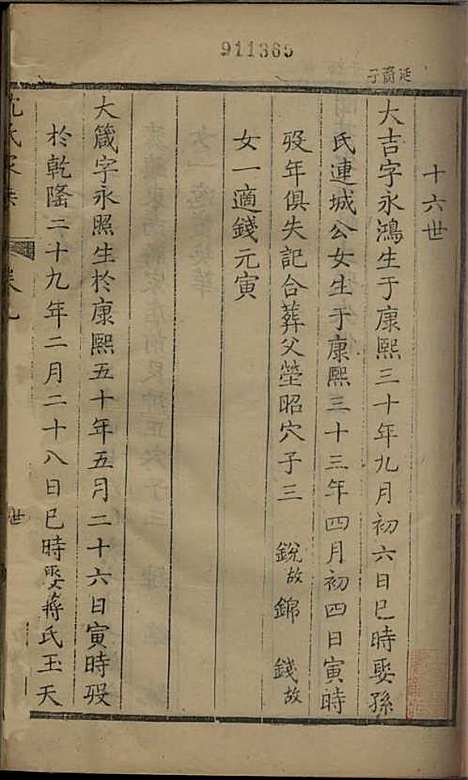 911365
延爵子
十六世
大吉字永鴻生于康熙三十年九月初六日巳時娶孫
氏連城公女生于康熙三十三年四月初四日寅時
歿年俱失記合葬父塋昭穴子三 銳故 錦 錢故
女一適錢元寅
大箴字永照生於康熙五十年五月二十六日寅時歿
於乾隆二十九年二月二十八日巳時娶蔣氏玉天
氏家
卷九
世